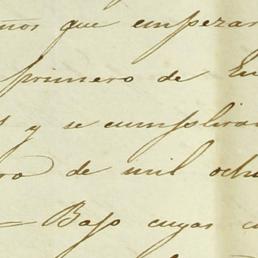 años que empezar
primero de En
y se cumplirá
ro de mil och
= Bajo cuyas c